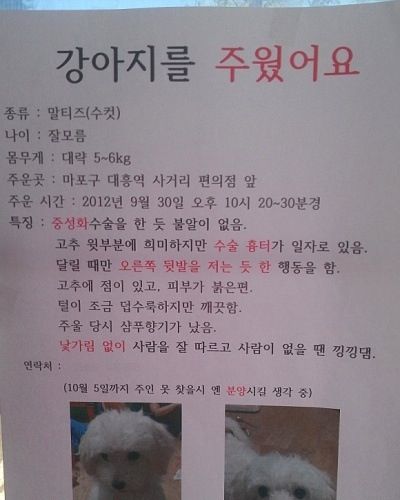 강아지를 주웠어요
종류 : 말티즈(수컷)
나이 : 잘모름
몸무게 : 대략 5~6kg
주운곳 : 마포구 대흥역 사거리 편의점 앞
주운 시간 : 2012년 9월 30일 오후 10시 20~30분경
특징 : 중성화수술을 한 듯 불알이 없음.
고추 윗부분에 희미하지만 수술 흉터가 일자로 있음.
달릴 때만 오른쪽 뒷발을 저는 듯 한 행동을 함.
고추에 점이 있고, 피부가 붉은편.
털이 조금 덥수룩하지만 깨끗함.
주울 당시 샴푸향기가 났음.
낯가림 없이 사람을 잘 따르고 사람이 없을 땐 낑낑댐.
연락처 :
(10월 5일까지 주인 못 찾을시 엔 분양시킬 생각 중)